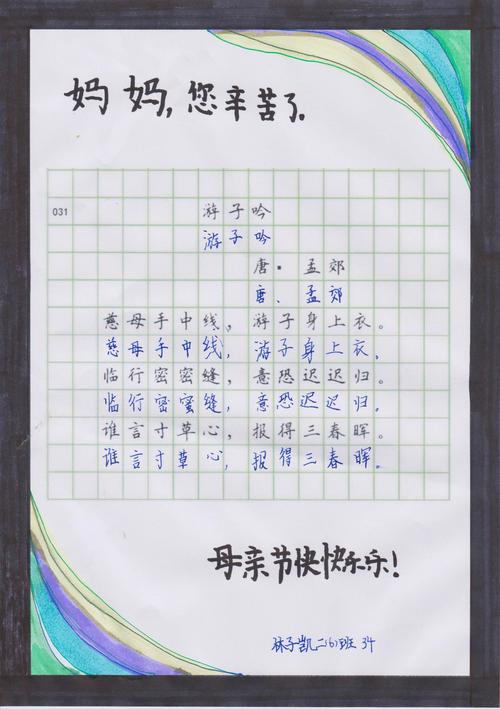 妈妈,您辛苦了。
031 游子吟
游子吟
唐·孟郊
唐、孟郊
慈母手中线,游子身上衣。
慈母手中线,游子身上衣、
临行密密缝,意恐迟迟归。
临行密密缝,意恐迟迟归、
谁言寸草心,报得三春晖。
谁言寸草心,报得三春晖。
母亲节快快乐乐!
林子凯二(6)班 34